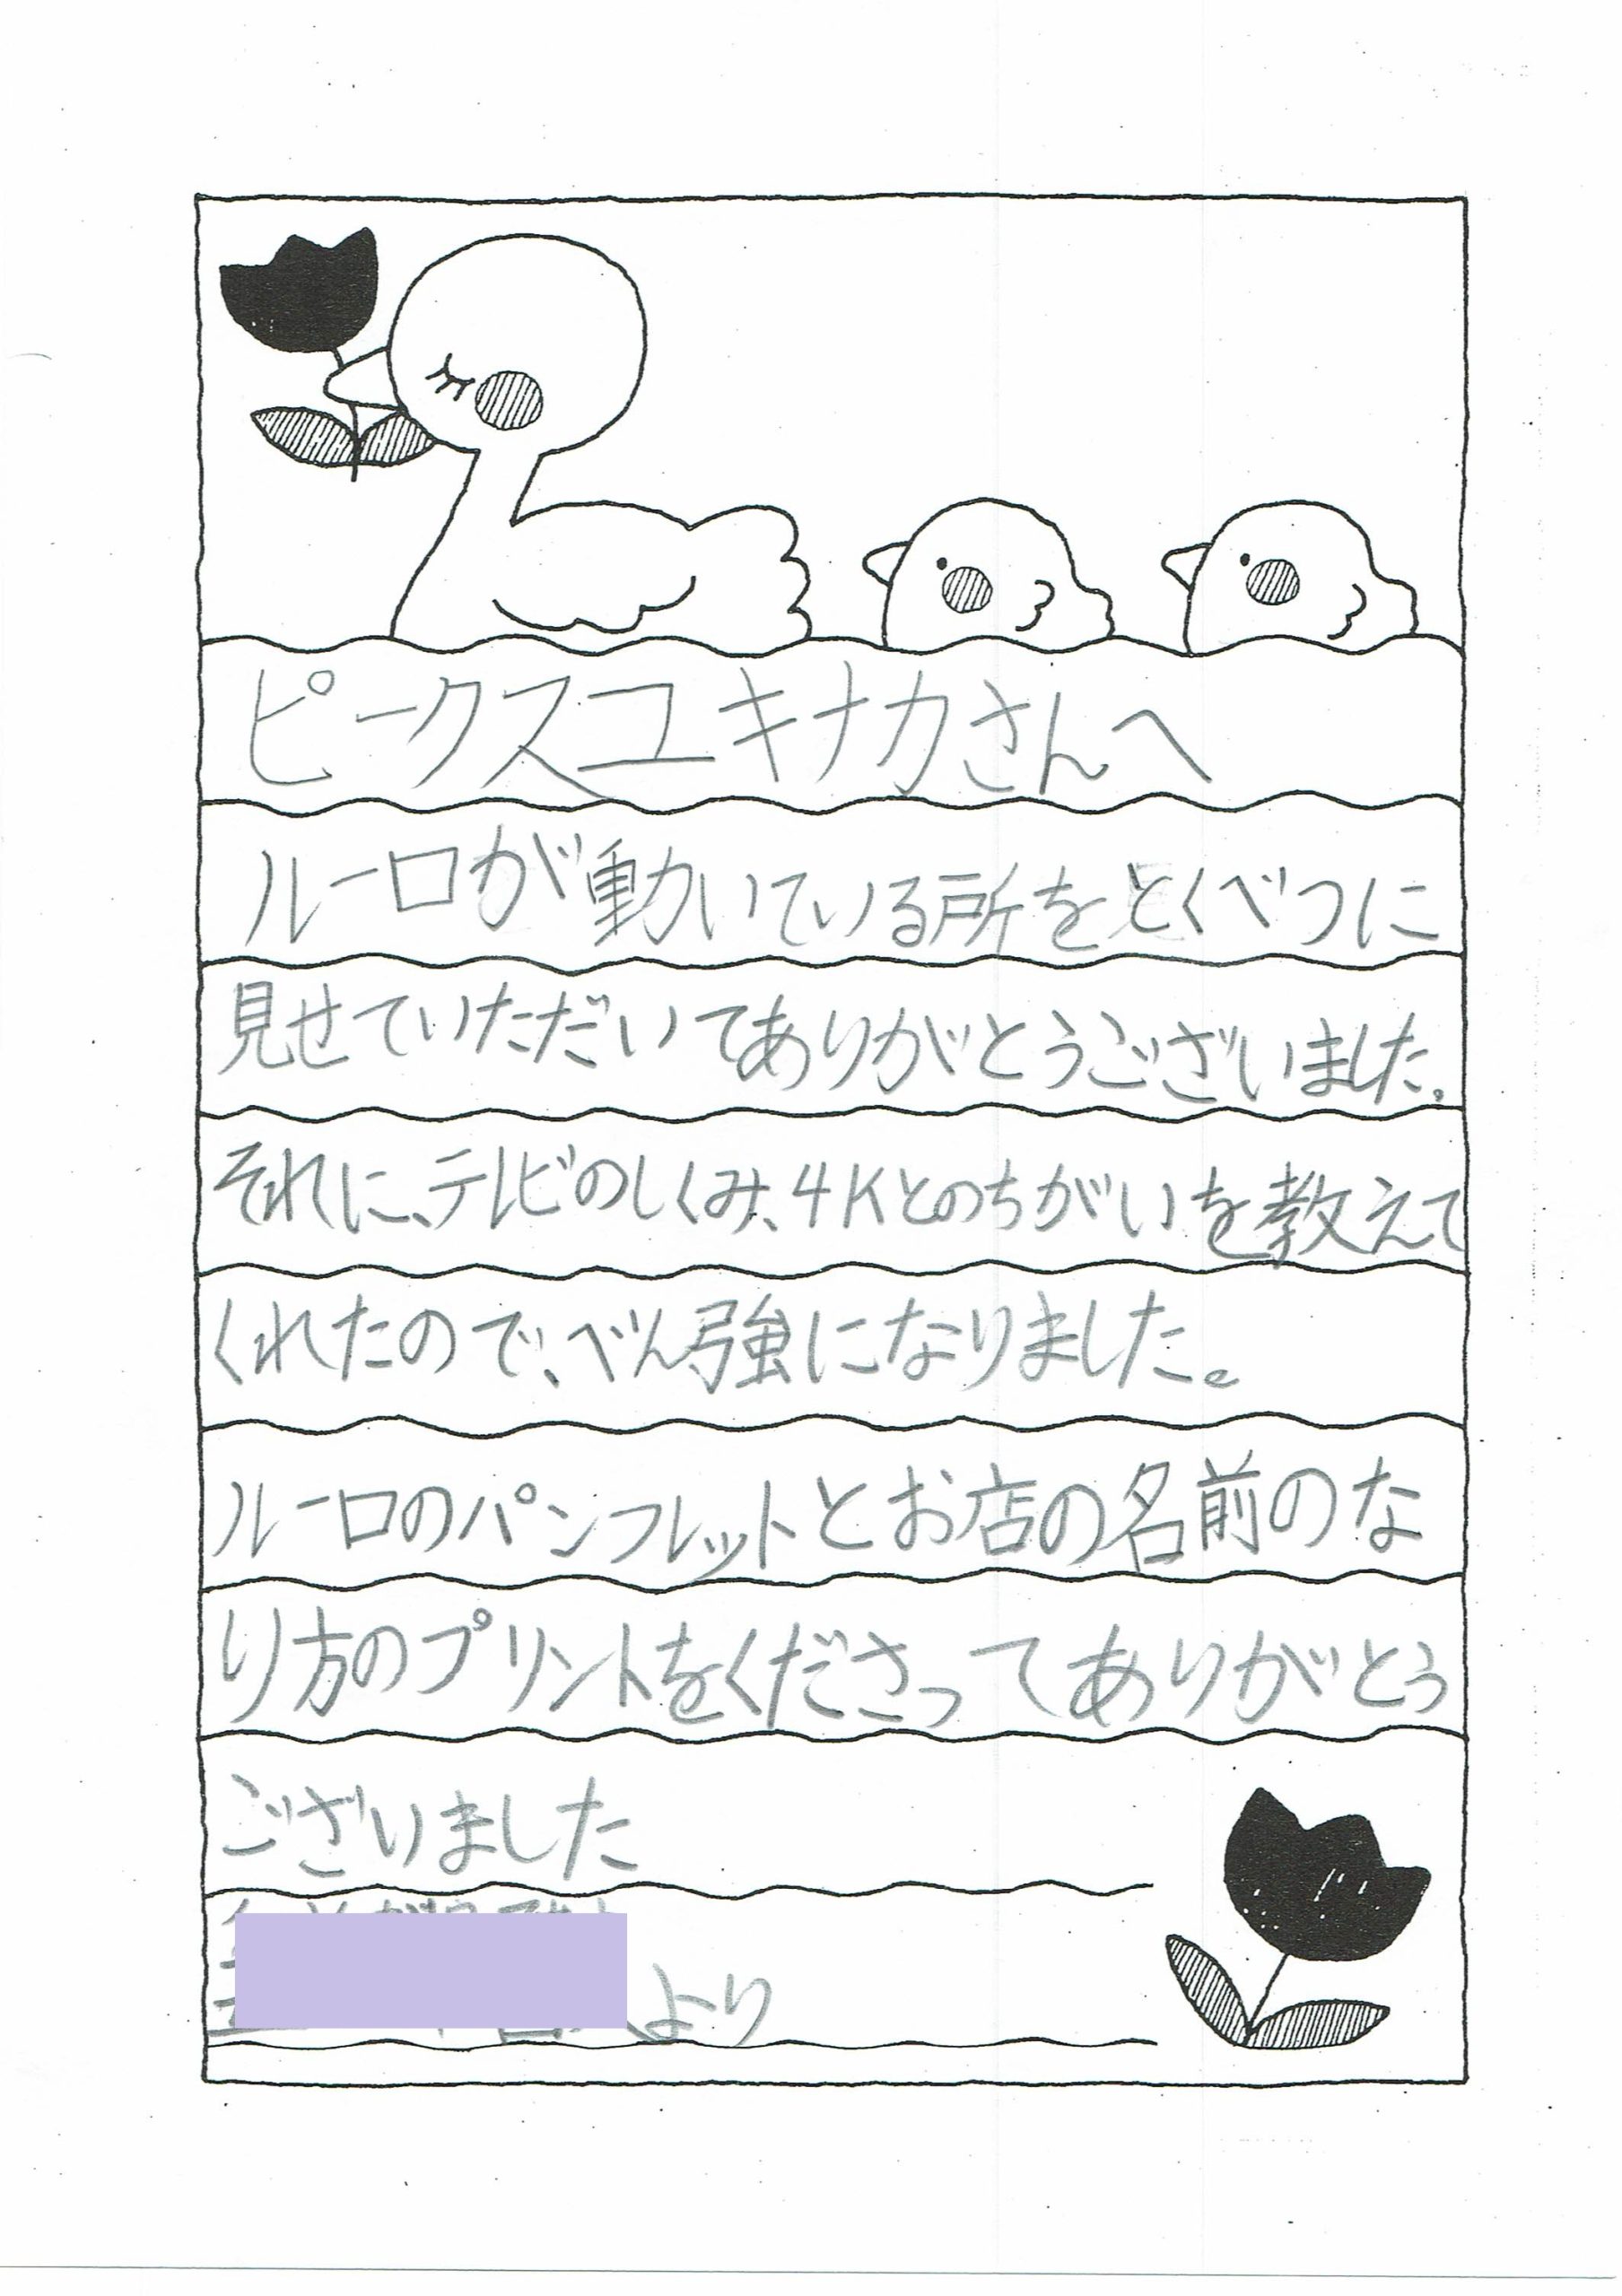 ピークスユキナカさんへ
ルーロが動いている所をとくべつに
見せていただいてありがとうございました。
それに、テレビのしくみ、4Kとのちがいを教えて
くれたので、べん強になりました。
ルーロのパンフレットとお店の名前のな
り方のプリントをくださってありがとう
ございました
より